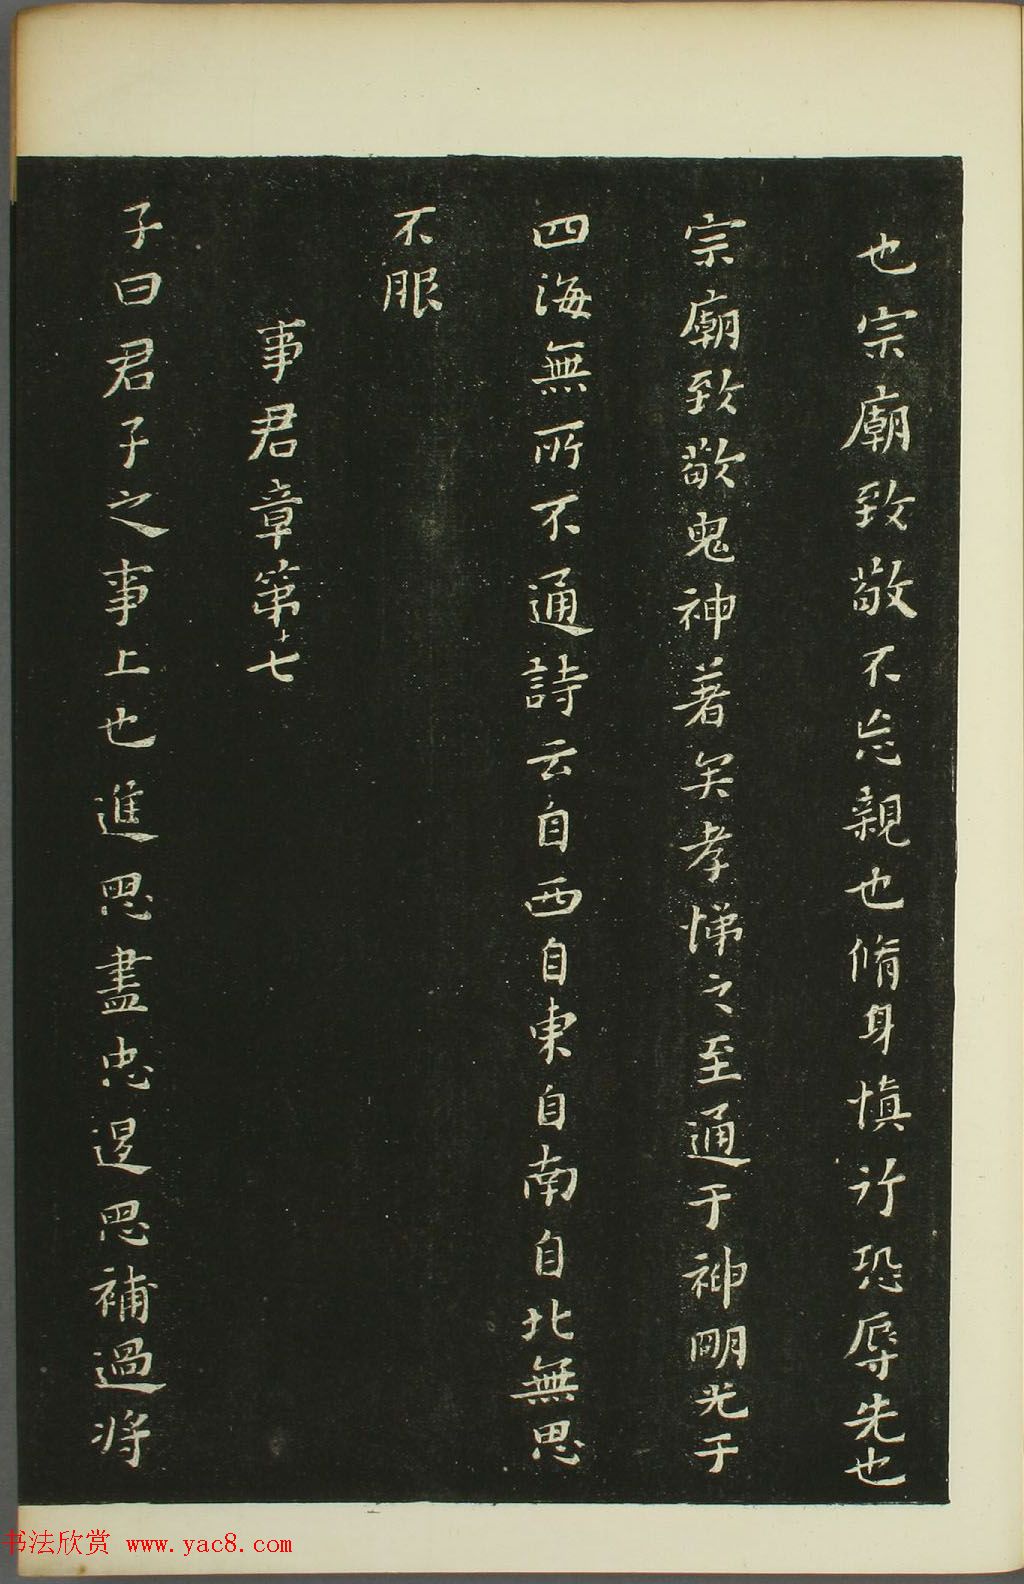 也宗廟致敬不忘親也脩身慎行恐辱先也
宗廟致敬鬼神著矣孝悌之至通于神明光于
四海無所不通詩云自西自東自南自北無思
不服
事君章第十七
子曰君子之事上也進思盡忠退思補過將
书法欣赏 www.yac8.com